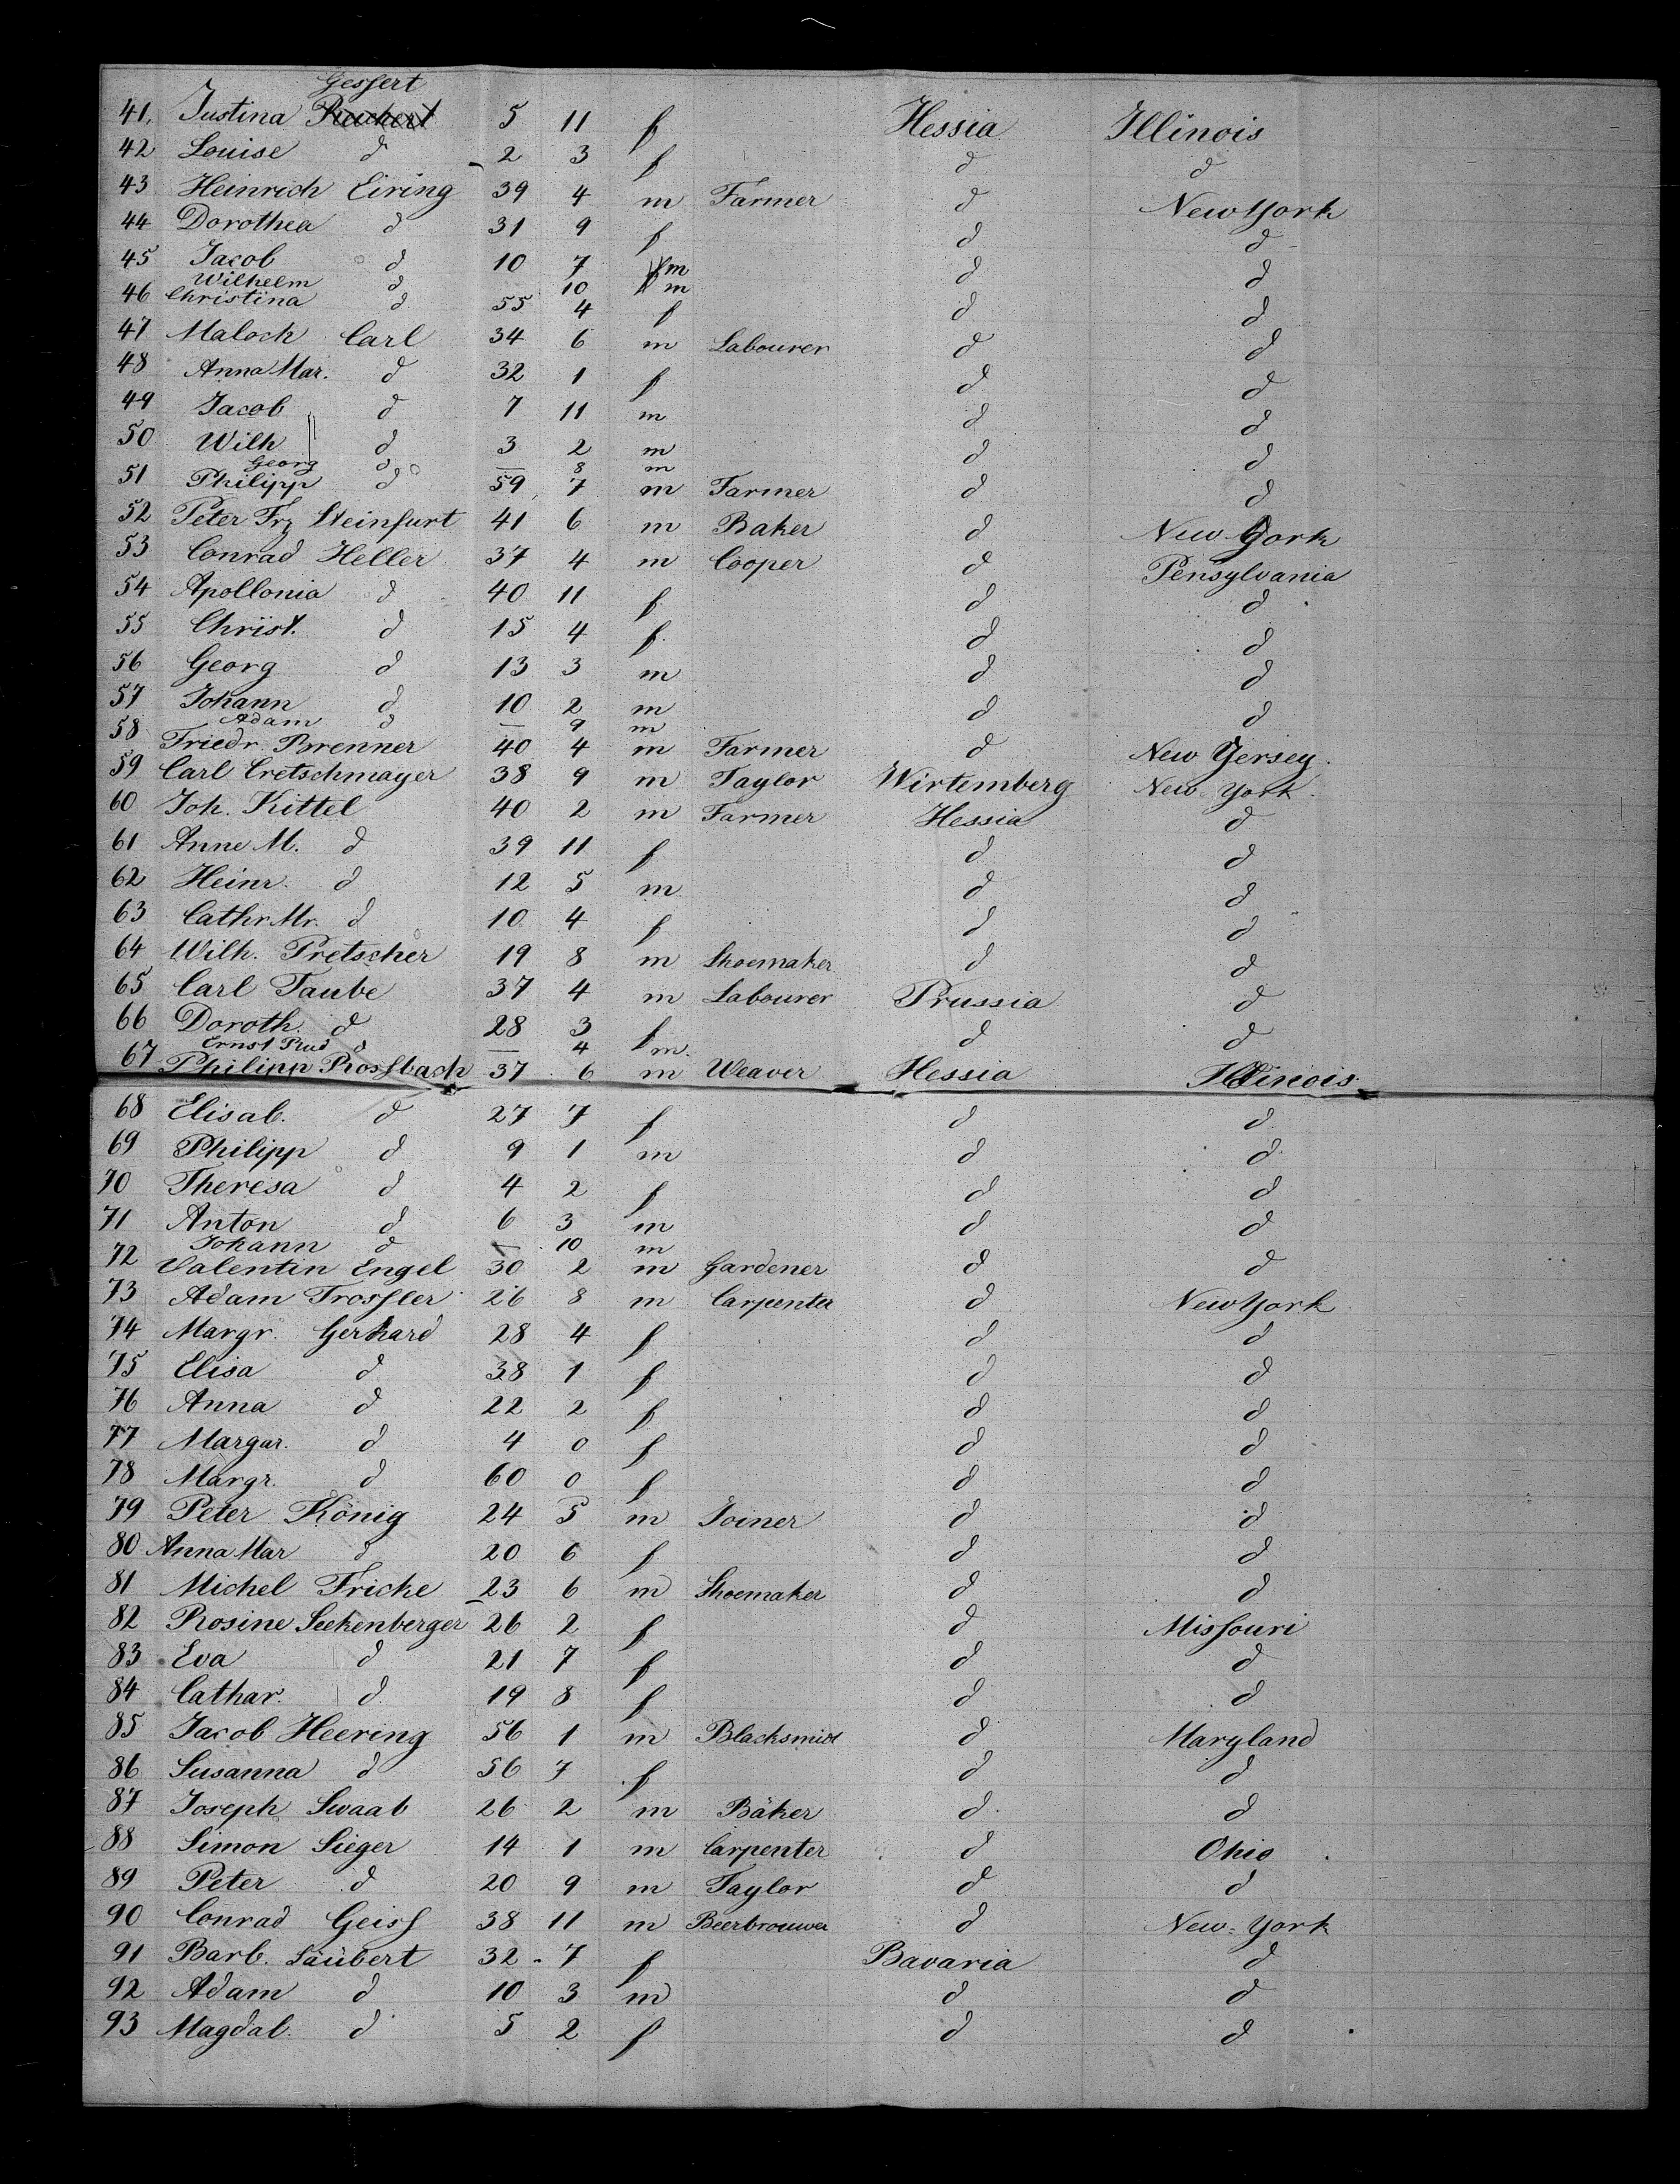 Gessert
41. Justina Ruckert 5 11 f Hessia Illinois
42 Louise d 2 3 f d d
43 Heinrich Eiring 39 4 m Farmer d New York
44 Dorothea d 31 9 f d d
45 Jacob d 10 7 m d d
Wilhelm d 10 m
46 Christina d 55 4 f d d
47 Maloch Carl 34 6 m Labourer d d
48 Anna Mar. d 32 1 f d d
49 Jacob d 7 11 m d d
50 Wilh d 3 2 m d d
Georg d — 8 m
51 Philipp d 59 7 m Farmer d d
52 Peter Frz Steinfurt 41 6 m Baker d New York
53 Conrad Heller 37 4 m Cooper d Pensylvania
54 Apollonia d 40 11 f d d
55 Christ. d 15 4 f d d
56 Georg d 13 3 m d d
57 Johann d 10 2 m d d
Adam d — 9 m
58 Friedr. Brenner 40 4 m Farmer d New Yersey.
59 Carl Cretschmayer 38 9 m Taylor Wirtemberg New York.
60 Joh. Kittel 40 2 m Farmer Hessia d
61 Anne M. d 39 11 f d d
62 Heinr. d 12 5 m d d
63 Cathr Mr. d 10 4 f d d
64 Wilh. Pretscher 19 8 m Shoemaker d d
65 Carl Taube 37 4 m Labourer Prussia d
66 Doroth. d 28 3 f d d
Ernst Rud d — 4 m.
67 Philipp Rossbach 37 6 m Weaver Hessia Illinois.
68 Elisab. d 27 7 f d d
69 Philipp d 9 1 m d d
70 Theresa d 4 2 f d d
71 Anton d 6 3 m d d
Johann d — 10 m
72 Valentin Engel 30 2 m Gardener d d
73 Adam Trossler 26 8 m Carpenter d New York
74 Margr. Gerhard 28 4 f d d
75 Elisa d 38 1 f d d
76 Anna d 22 2 f d d
77 Margar. d 4 0 f d d
78 Margr. d 60 0 f d d
79 Peter König 24 5 m Joiner d d
80 Anna Mar d 20 6 f d d
81 Michel Fricke 23 6 m Shoemaker d d
82 Rosine Seekenberger 26 2 f d Missouri
83 Eva d 21 7 f d d
84 Cathar. d 19 8 f d d
85 Jacob Heering 56 1 m Blacksmidt d Maryland
86 Susanna d 56 7 f d d
87 Joseph Swaab 26 2 m Bäker d d
88 Simon Sieger 14 1 m Carpenter d Ohio
89 Peter d 20 9 m Taylor d d
90 Conrad Geiss 38 11 m Beerbrouwer d New-York
91 Barb. Laübert 32 7 f Bavaria d
92 Adam d 10 3 m d d
93 Magdal. d 5 2 f d d